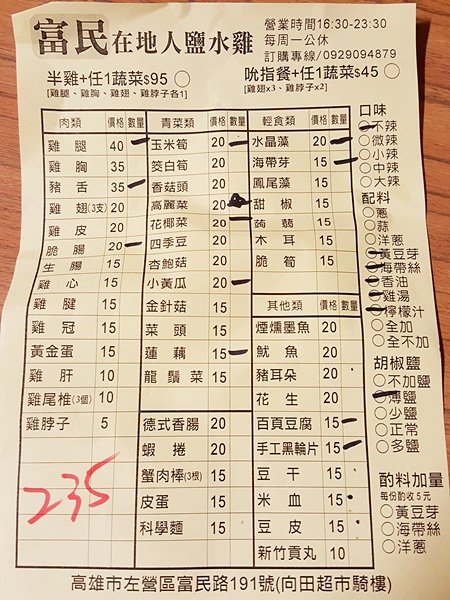 富民在地人鹽水雞
營業時間16:30-23:30
每周一公休
訂購專線/0929094879
半雞+任1蔬菜$95 ○
[雞腿、雞胸、雞翅、雞脖子各1]
吮指餐+任1蔬菜$45 ○
[雞翅x3、雞脖子x2]
肉類 價格 數量
雞腿 40
雞胸 35
豬舌 35
雞翅(3支) 20
雞皮 20
脆腸 20
生腸 15
雞心 15
雞腱 15
雞冠 15
黃金蛋 15
雞肝 10
雞尾椎(3個) 10
雞脖子 5
235
青菜類 價格 數量
玉米筍 20
茭白筍 20
香菇頭 20
高麗菜 20
花椰菜 20
四季豆 20
杏鮑菇 20
小黃瓜 20
金針菇 15
菜頭 15
蓮藕 15
龍鬚菜 15
德式香腸 20
蝦捲 20
蟹肉棒(3根) 15
皮蛋 15
科學麵 15
輕食類 價格 數量
水晶藻 20
海帶芽 15
鳳尾藻 15
甜椒 15
蒟蒻 15
木耳 15
脆筍 15
其他類 價格 數量
煙燻墨魚 20
魷魚 20
豬耳朵 20
花生 20
百頁豆腐 15
手工黑輪片 15
豆干 15
米血 15
豆皮 15
新竹貢丸 10
口味
○不辣
○微辣
○小辣
○中辣
○大辣
配料
○蔥
○蒜
○洋蔥
○黃豆芽
○海帶絲
○香油
○雞湯
○檸檬汁
○全加
○全不加
胡椒鹽
○不加鹽
○薄鹽
○少鹽
○正常
○多鹽
酌料加量
每份酌收5元
○黃豆芽
○海帶絲
○洋蔥
高雄市左營區富民路191號(向田超市騎樓)